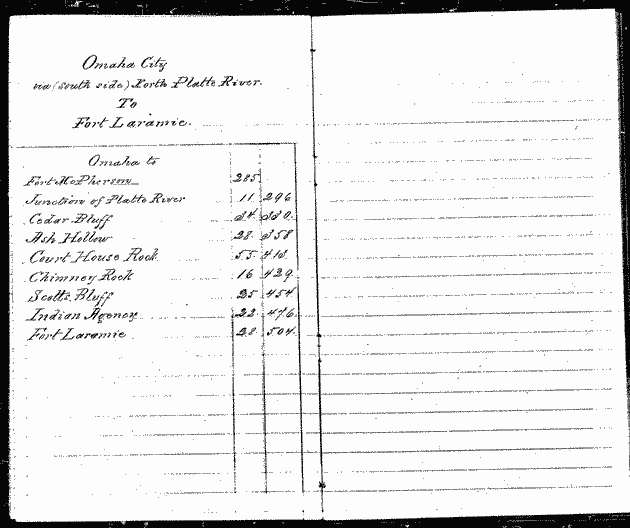 Omaha City
via (south side) North Platte River.
To
Fort Laramie.
Omaha to
Fort McPherson 285
Junction of Platte River 11 296
Cedar Bluff 34. 330.
Ash Hollow 28. 358
Court House Rock 55. 413.
Chimney Rock 16 429.
Scotts Bluff 25 454.
Indian Agency 22 476.
Fort Laramie 28. 504.